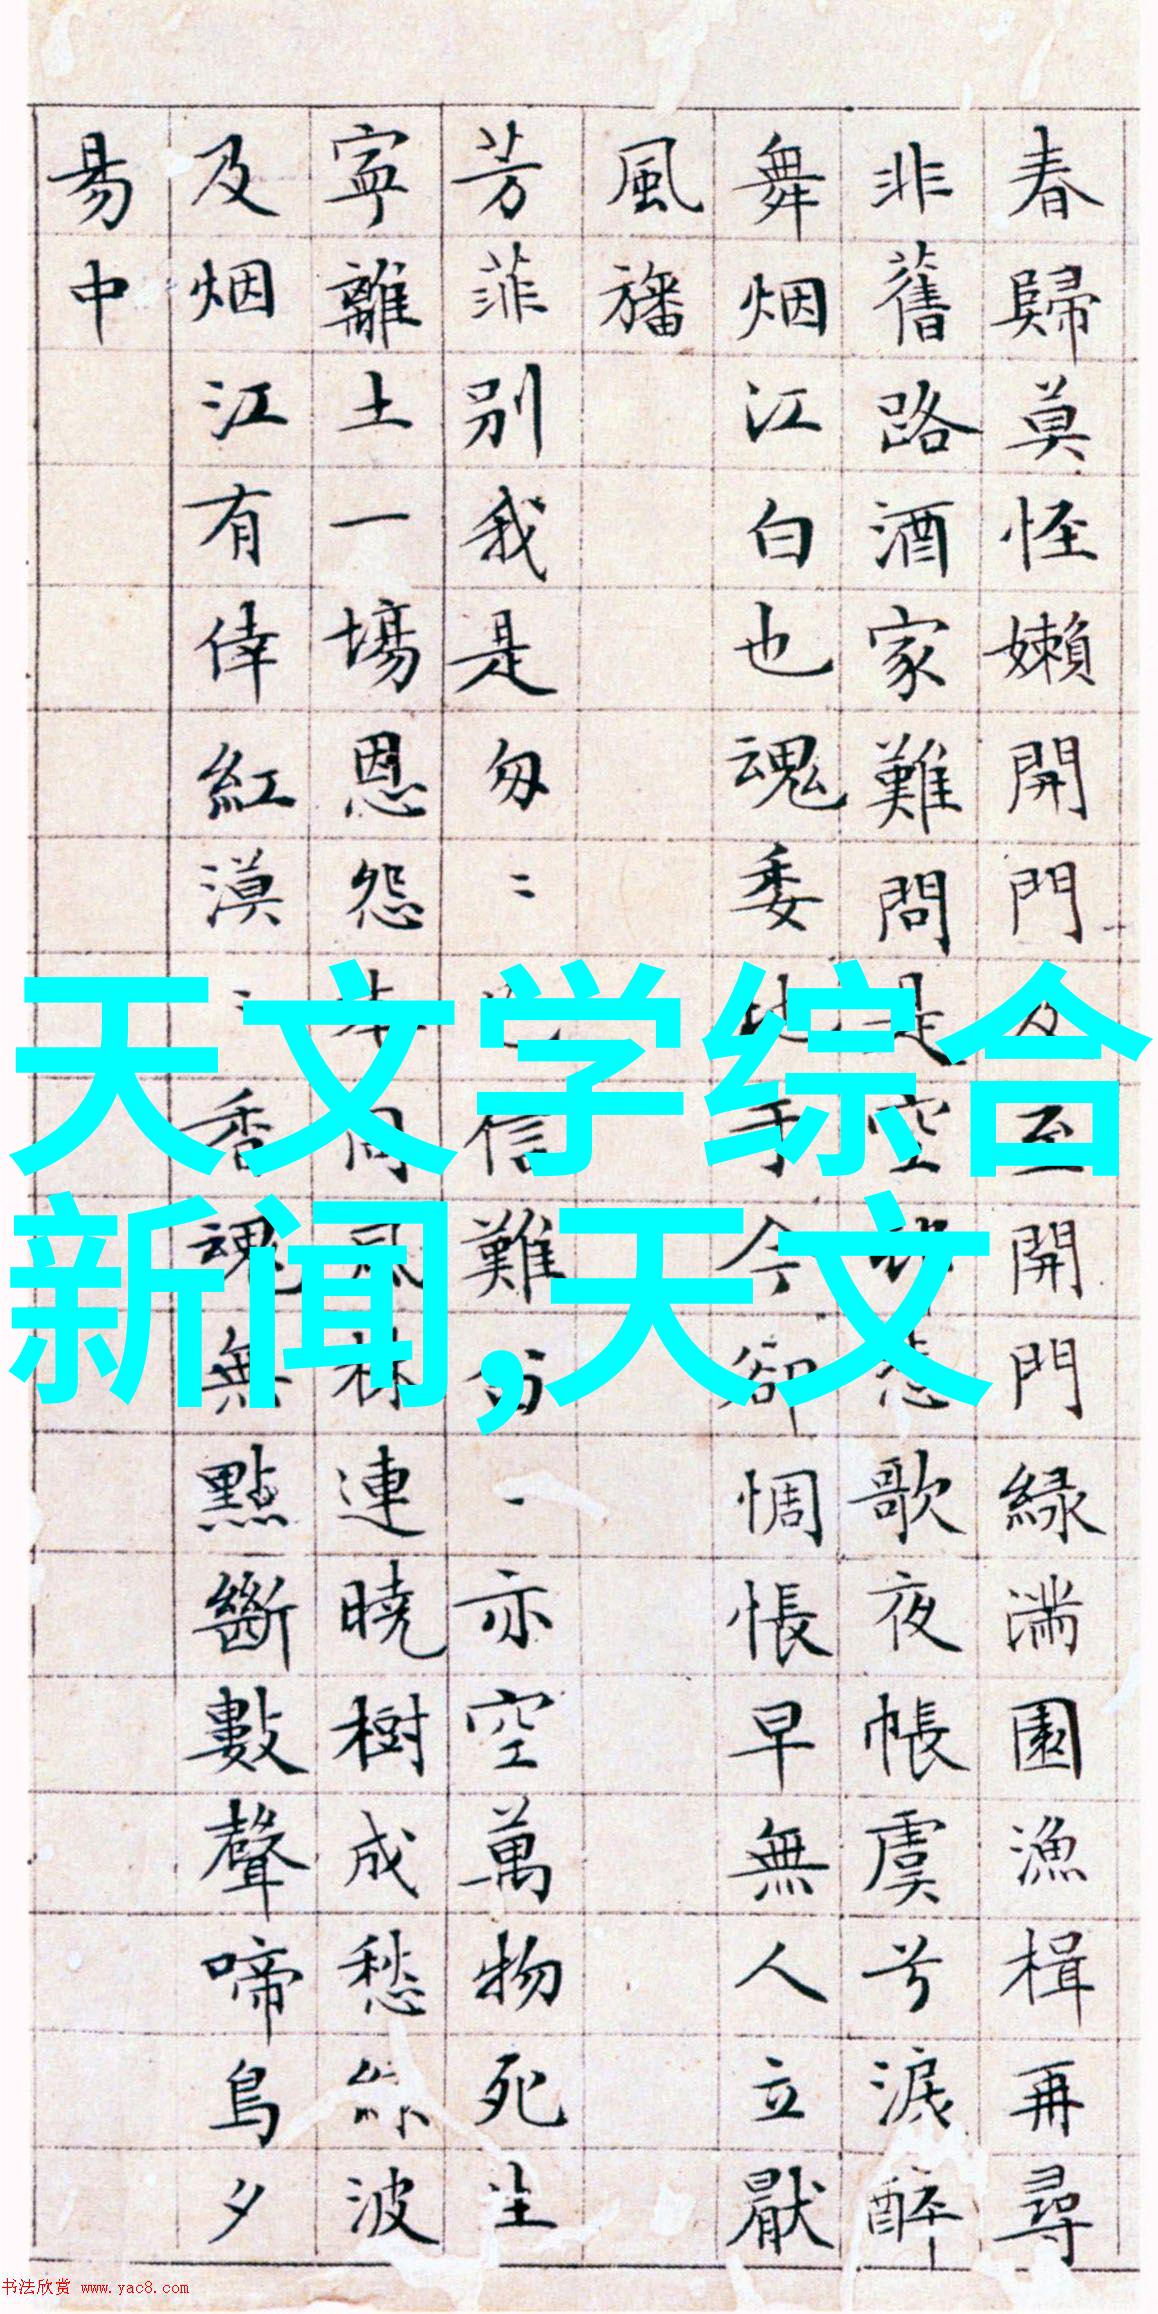 春歸莫怪嬾開門及至開門緑滿園漁楫再尋
非舊路酒家難問是空邨悲歌夜帳虞兮淚醉
舞烟江白也魂委地于今卻惆悵早無人立厭
風旛
芳菲別我是匆〻已信難留一亦空萬物死生
寧離土一場恩怨本同風株連曉樹成愁綠波
及烟江有倖紅漠〻香魂無點斷數聲啼鳥夕
易中
天文学综合
新闻,天文
书法欣赏 www.yac8.com